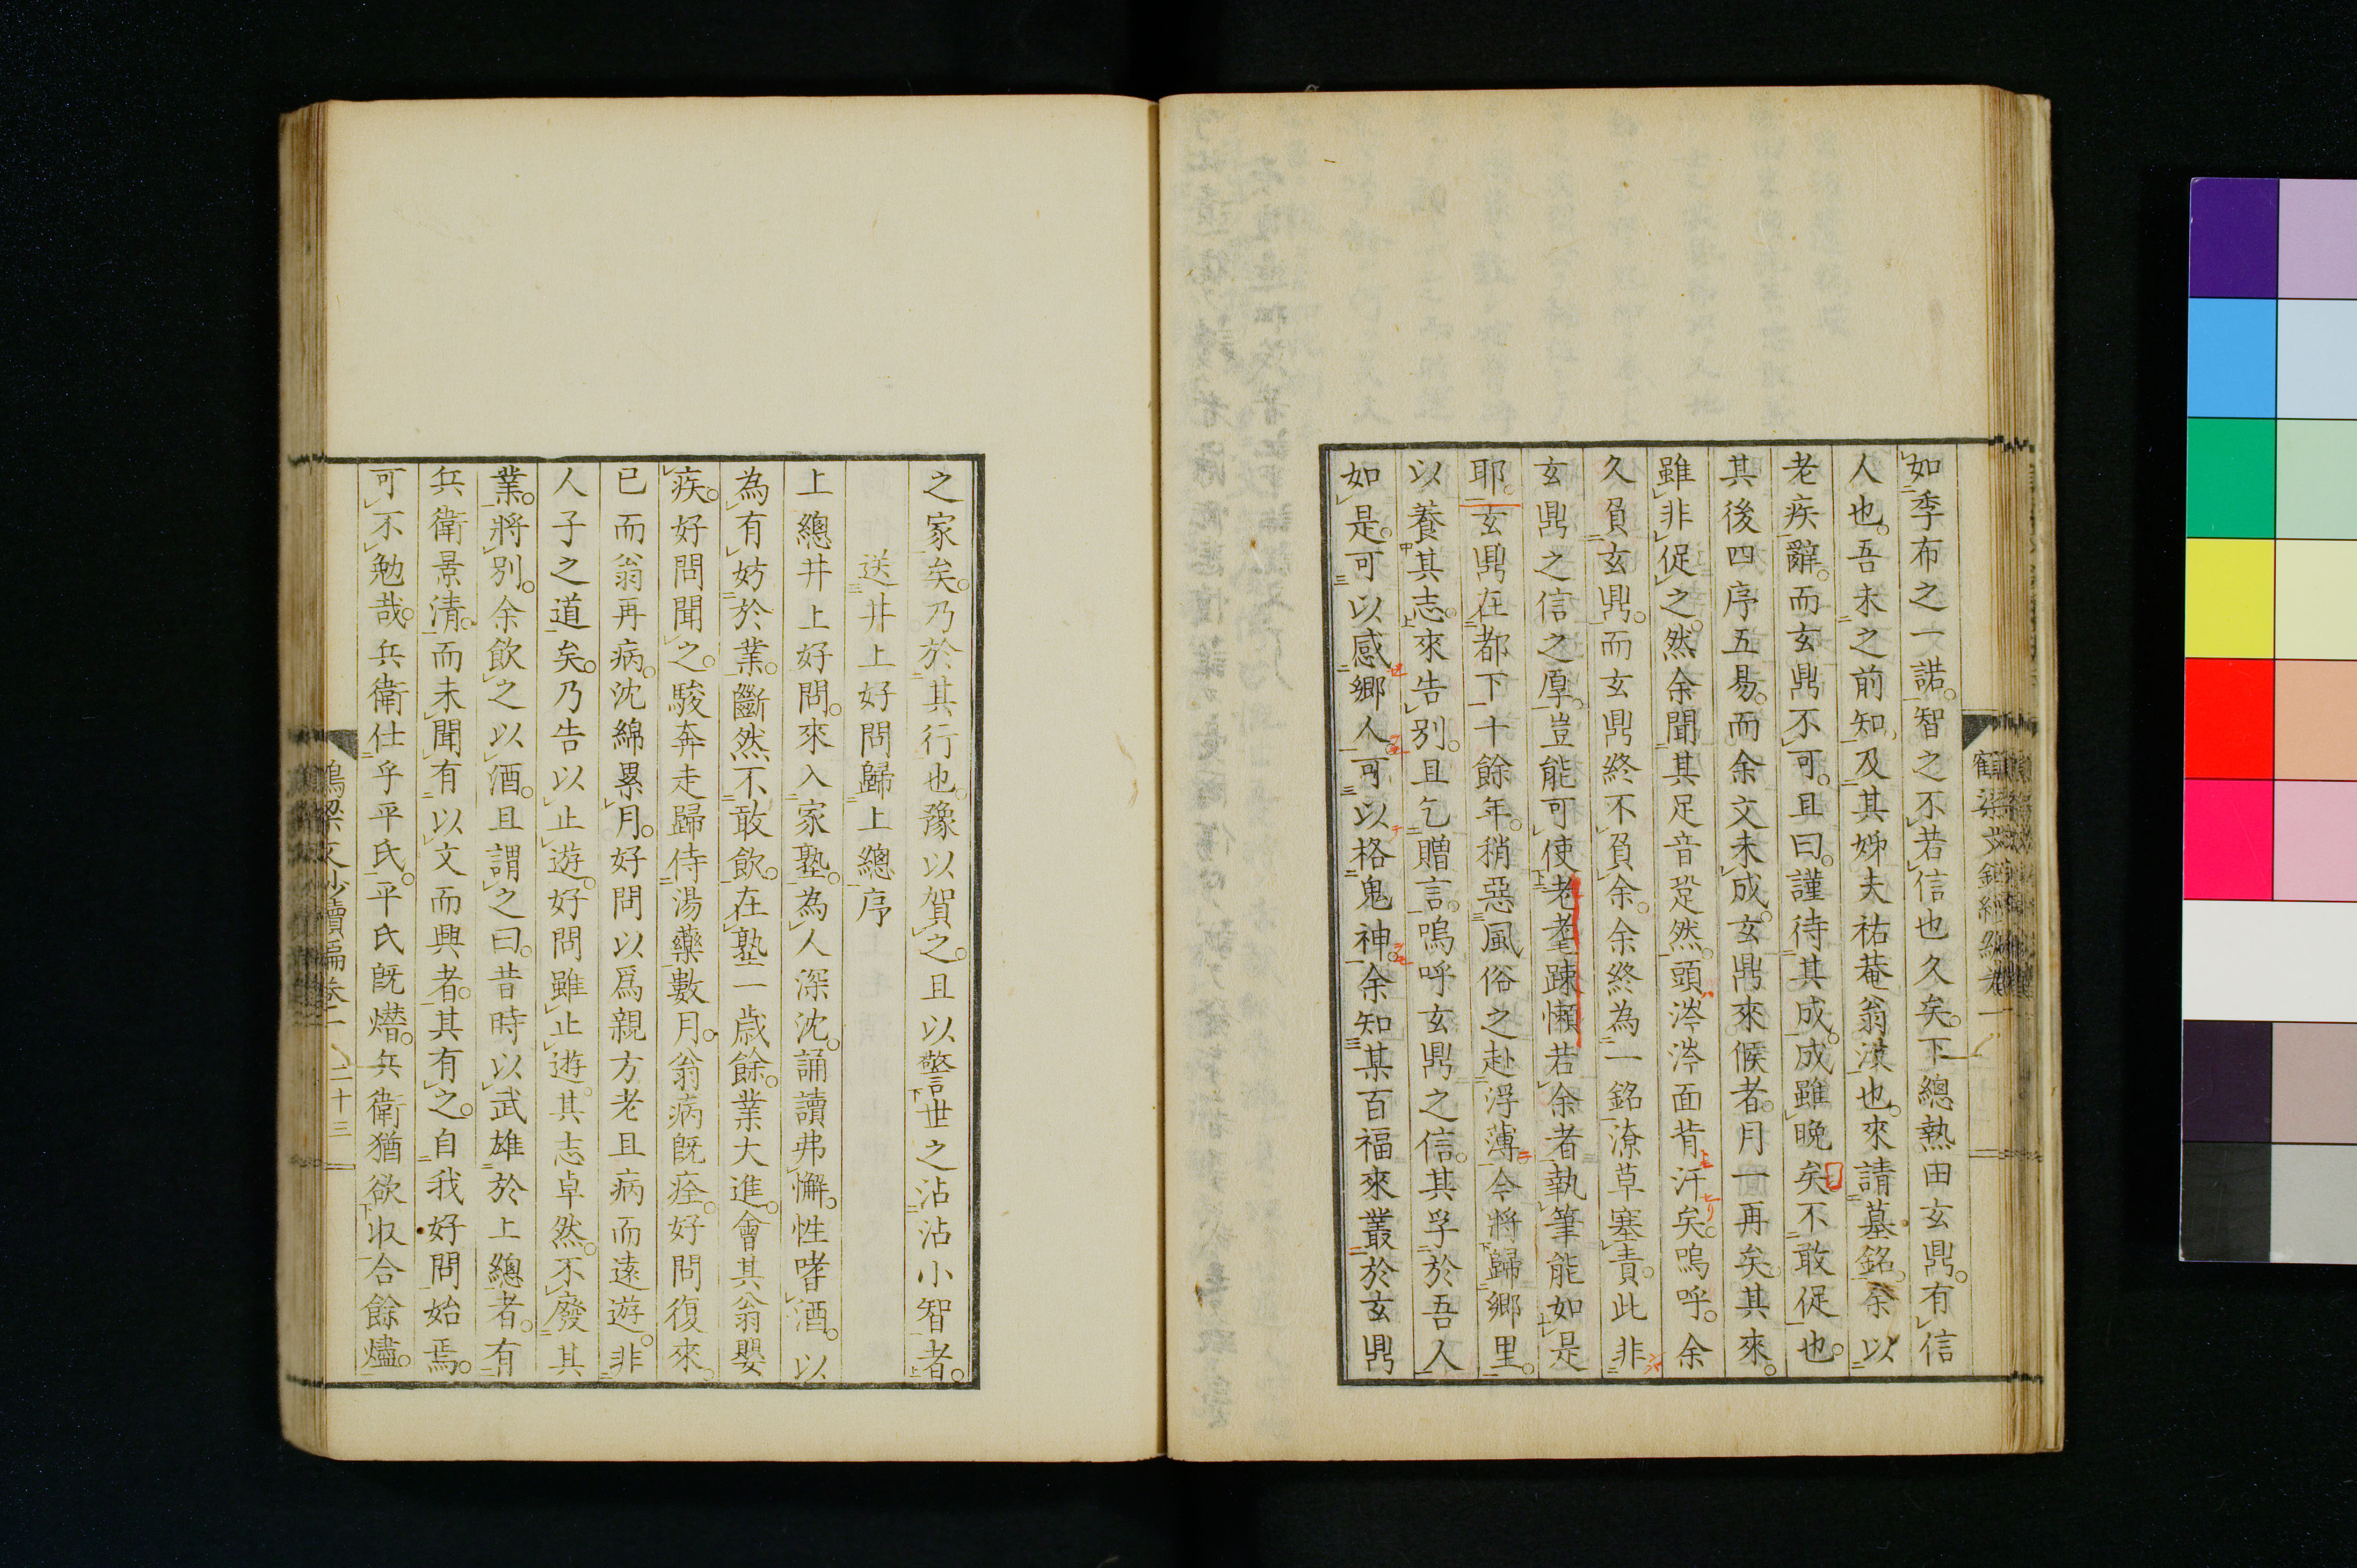 如季布之一諾。智之不若信也久矣。下總熱田玄鼎。有信
人也。吾未之前知。及其姊夫祐菴翁漠也。來請墓銘。余以
老疾辭。而玄鼎不可。且曰。謹待其成。成雖晚矣不敢促也。
其後四序五易。而余文未成。玄鼎來候者。月一再矣。其來。
雖非促之。然余聞其足音跫然。頭涔涔面背汗矣。嗚呼。余
久負玄鼎。而玄鼎終不負余。余終為一銘潦草塞責。此非
玄鼎之信之厚。豈能可使老耄踈懶若余者執筆能如是
耶。玄鼎在都下十餘年。稍惡風俗之赴浮薄。今將歸鄉里。
以養其志。來告別。且乞贈言。嗚呼玄鼎之信。其孚於吾人
如是。可以感鄉人。可以格鬼神。余知某百福來叢於玄鼎
之家矣。乃於其行也。豫以賀之。且以警世之沾沾小智者。
送井上好問歸上總序
上總井上好問。來入家塾。為人深沈。誦讀弗懈。性嗜酒。以
為有妨於業。斷然不敢飲。在塾一歲餘。業大進。會其翁嬰
疾。好問聞之。駿奔走歸侍湯藥數月。翁病既痊。好問復來。
已而翁再病。沈綿累月。好問以爲親方老且病而遠遊。非
人子之道矣。乃告以止遊。好問雖止遊。其志卓然。不廢其
業。將別。余飲之以酒。且謂之曰。昔時以武雄於上總者。有
兵衛景清。而未聞有以文而興者。其有之。自我好問始焉。
可不勉哉。兵衛仕乎平氏。平氏既熸。兵衛猶欲收合餘燼。
鶴梁文鈔續編卷二 二十三